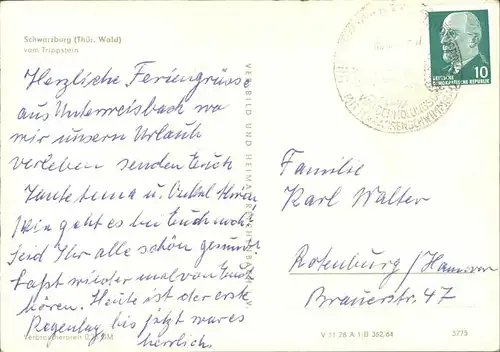 Schwarzburg (Thür. Wald)
vom Trippstein
Herzliche Feriengrüsse
aus Unterweisbach wo
wir unsern Urlaub
verleben senden Euch
Tante u. Onkel
Wie geht es bei Euch noch?
Seid Ihr alle schön gesund?
Laßt wieder mal von Euch
hören. Heute ist der erste
Regentag, bis jetzt war es
herrlich.
Verbraucherpreis
VERLAG BILD UND HEIMAT REICHENBACH I. V.
DEUTSCHE
DEMOKRATISCHE REPUBLIK
10
Familie
Karl Walter
Rotenburg / Hannover
Brauerstr. 47
V 11 28 A 1 B 362/64
5775